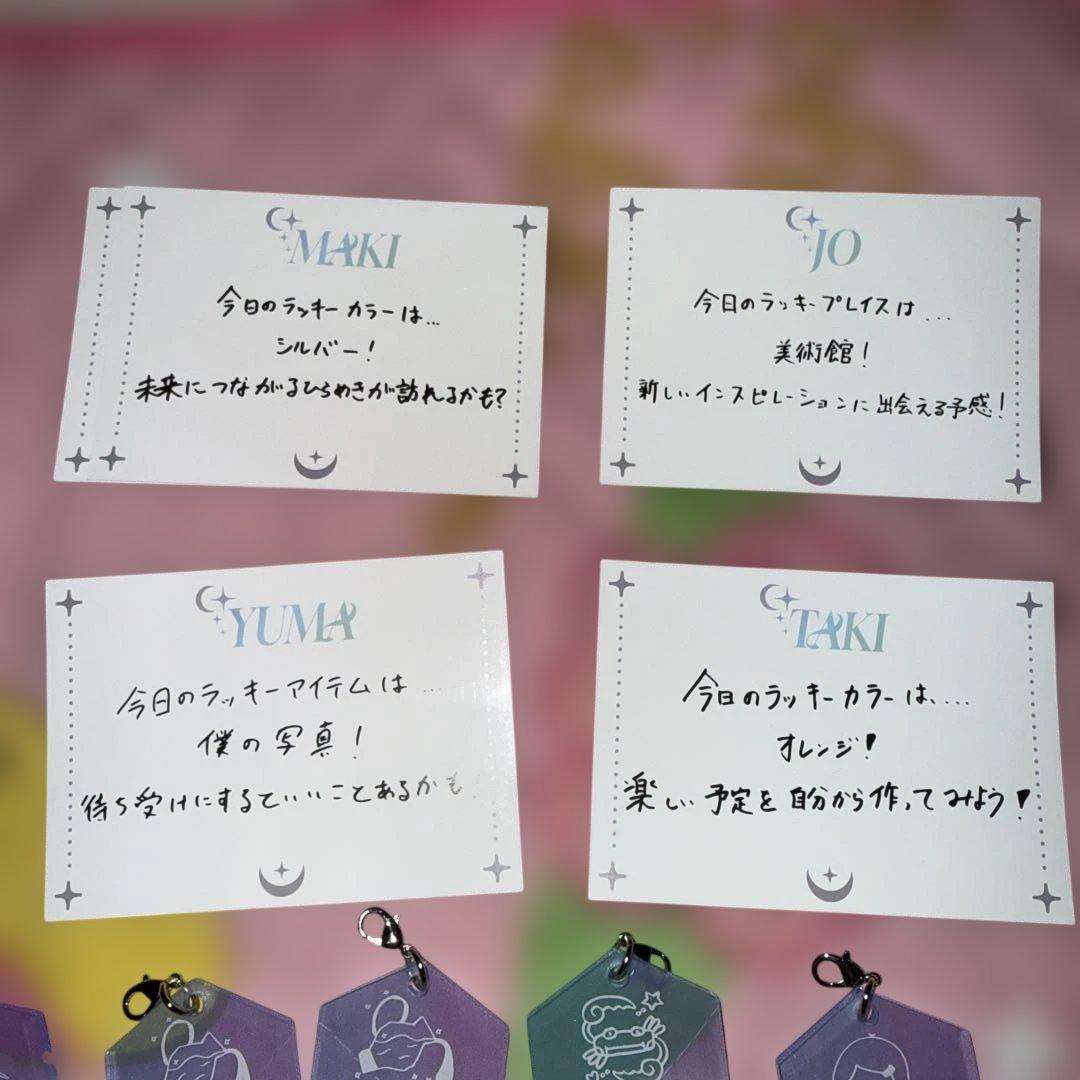 MAKI
今日のラッキーカラーは...
シルバー!
未来につながるひらめきが訪れるかも?
JO
今日のラッキープレイスは...
美術館!
新しいインスピレーションに出会える予感!
YUMA
今日のラッキーアイテムは...
僕の写真!
待ち受けにするといいことあるかも
TAKI
今日のラッキーカラーは....
オレンジ!
楽しい予定を自分から作ってみよう!